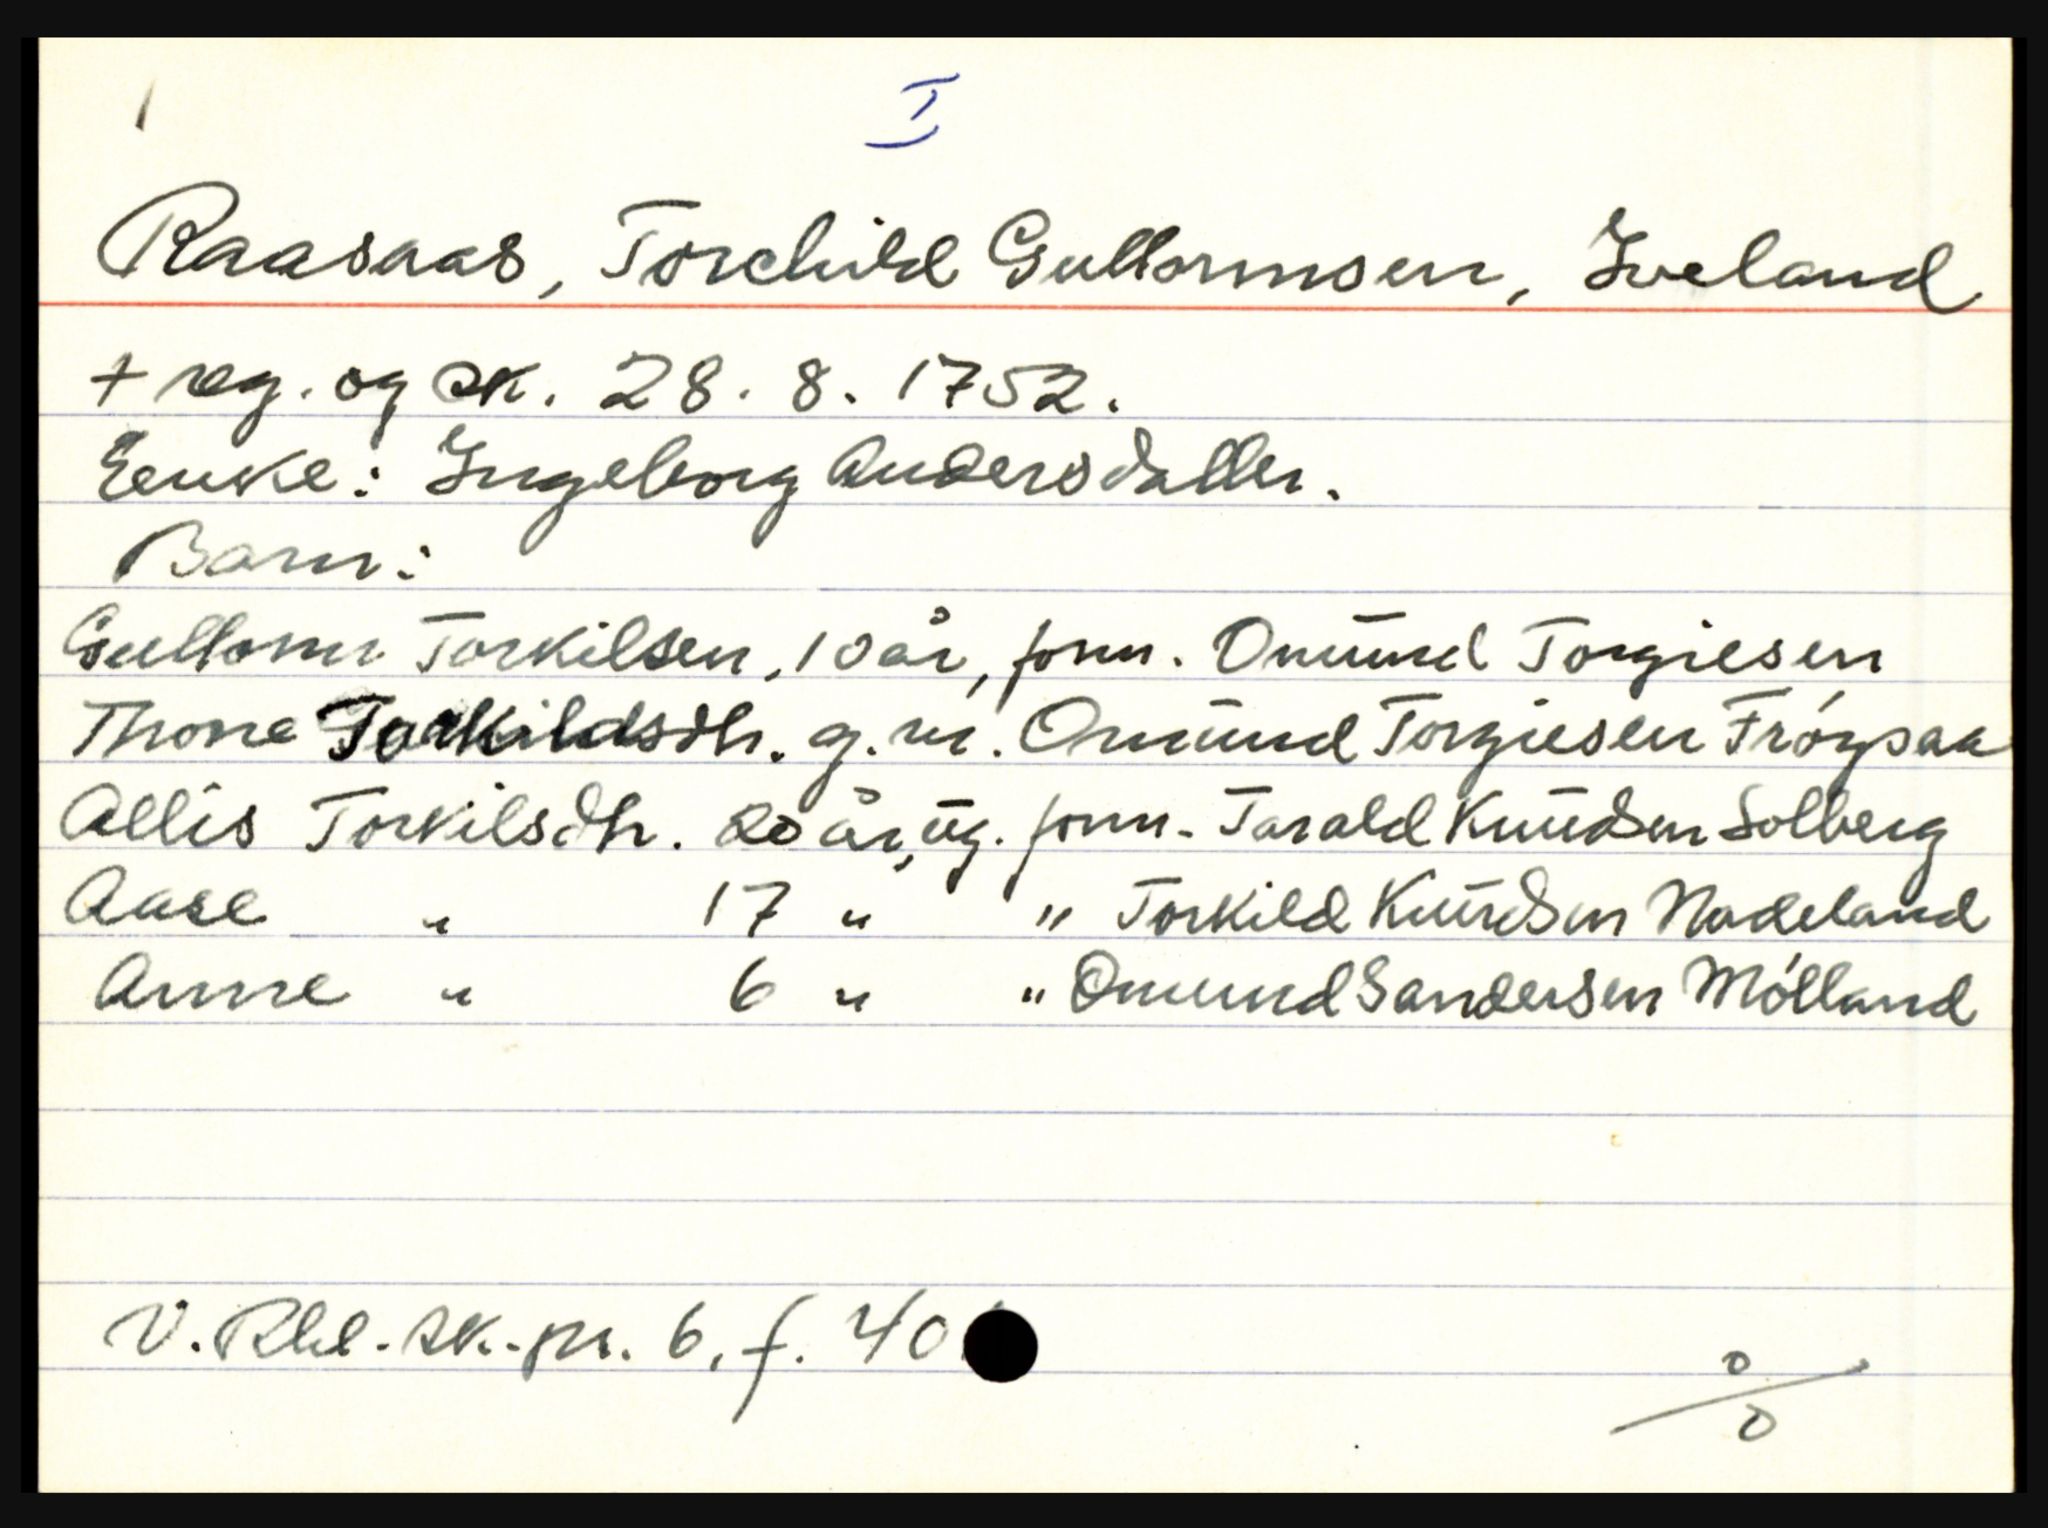 I
Raasaas, Torchild Guttormsen, Iveland
+ reg. og sk. 28. 8. 1752.
Encke: Ingeborg Andersdatter.
Barn:
Guttorm Torkilsen, 10 år, form. Omund Torgiesen
Thone Torkildsdtr. g.m. Omund Torgiesen Frøysaa
Allis Torkilsdtr. 20 år, ug. form. Tarald Knudsen Solberg
Aase " 17 " " Torkild Knudsen Nadeland
Anne " 6 " " Omund Sandersen Mölland
V. Rbl. sk.-pr. 6, f. 40
0/0